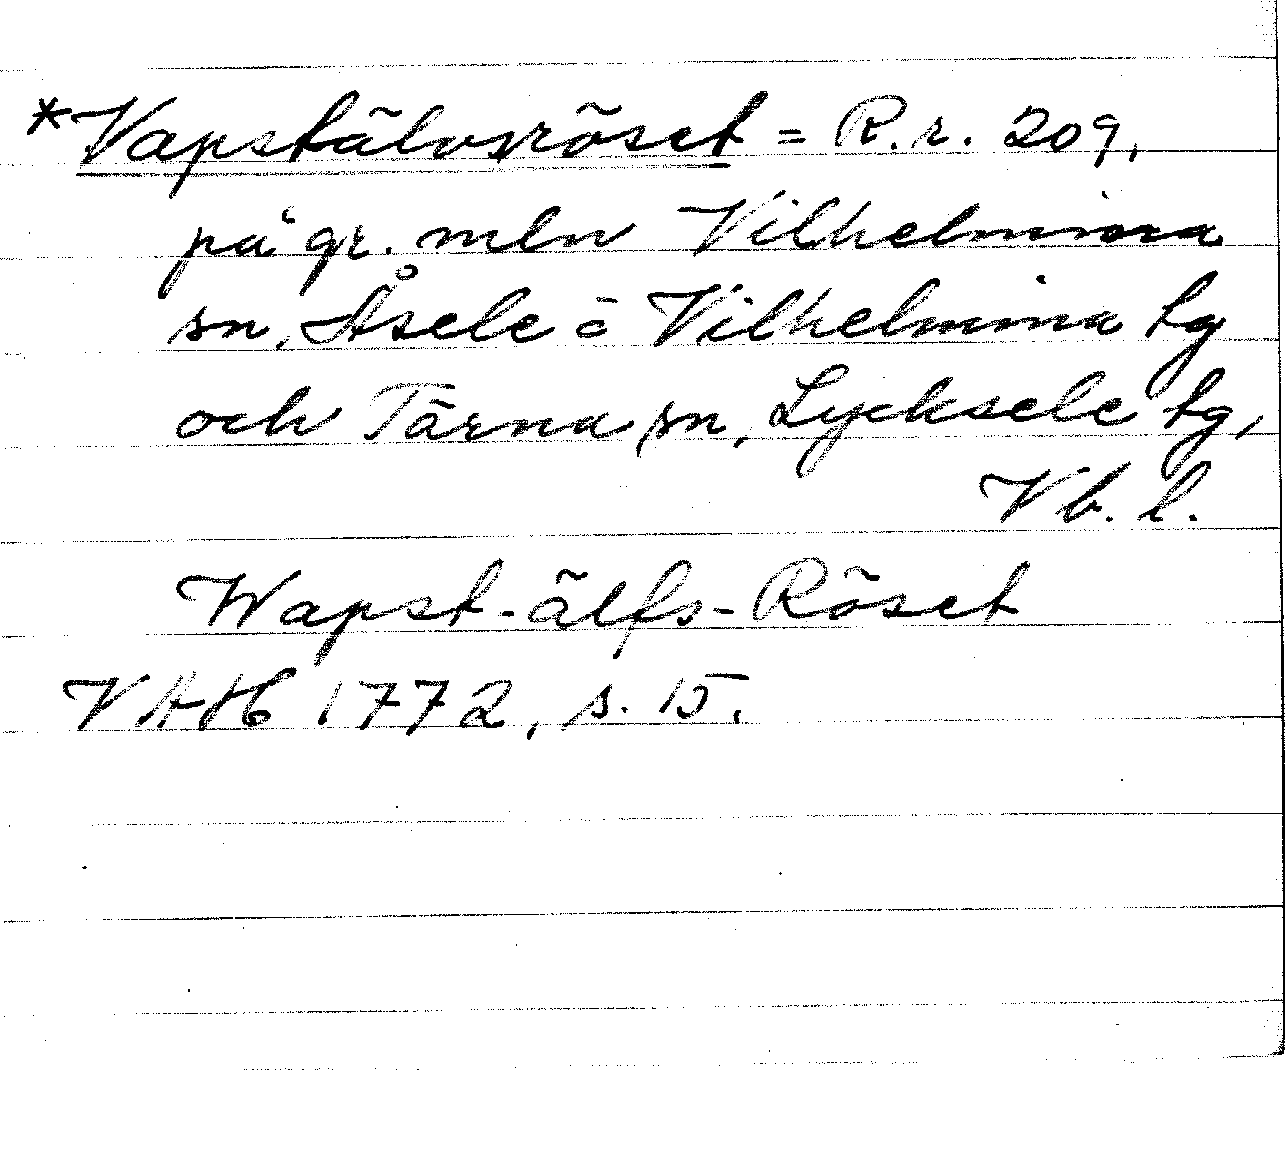 *Vapstälvsröset = R.r. 209,
på gr. mln Vilhelmina
sn, Åsele o Vilhelmina tg
och Tärna sn, Lycksele tg,
Vb. l.
Wapst-älfs-Röset
VAH 1772, s. 15.